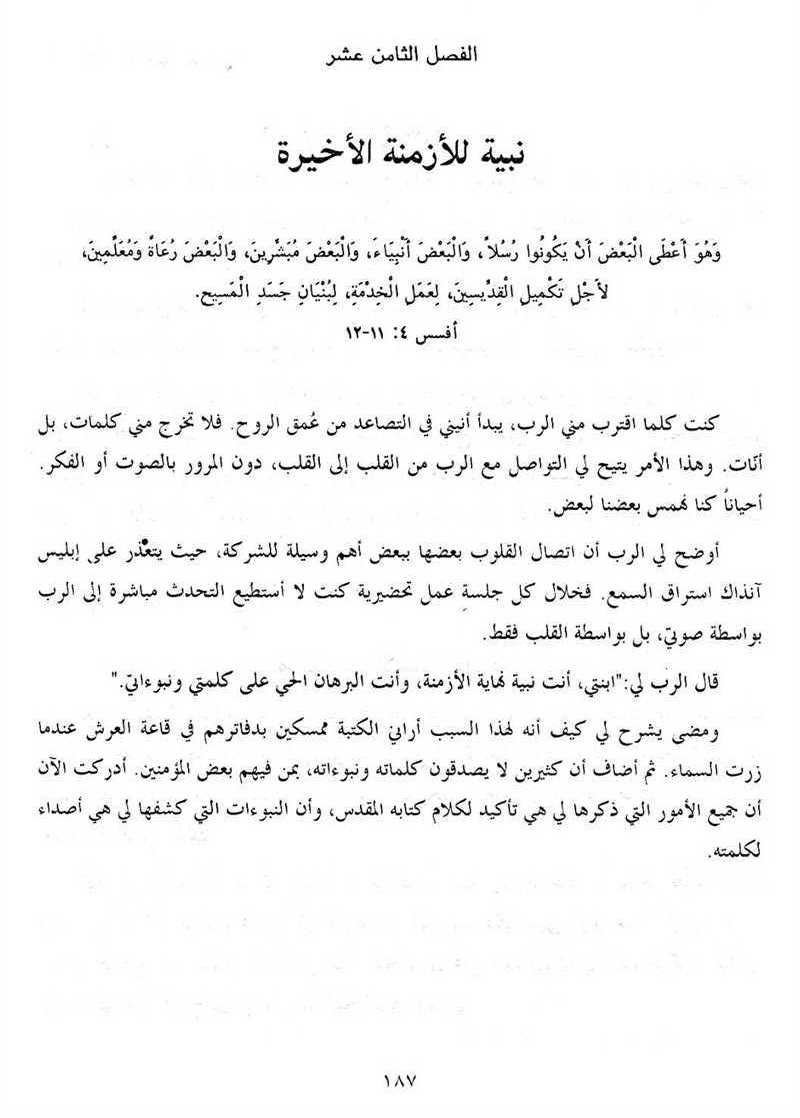 الفصل الثامن عشر
نبية للأزمنة الأخيرة
وَهُوَ أَعْطَى الْبَعْضَ أَنْ يَكُونُوا رُسُلاً، وَالْبَعْضَ أَنْبِيَاءَ، وَالْبَعْضَ مُبَشِّرِينَ، وَالْبَعْضَ رُعَاةً وَمُعَلِّمِينَ،
لأَجْلِ تَكْمِيلِ الْقِدِّيسِينَ، لِعَمَلِ الْخِدْمَةِ، لِبُنْيَانِ جَسَدِ الْمَسِيحِ.
أفسس ٤: ١١-١٢
كنت كلما اقترب مني الرب، يبدأ أنيني في التصاعد من عُمق الروح. فلا تخرج مني كلمات، بل
أنّات. وهذا الأمر يتيح لي التواصل مع الرب من القلب إلى القلب، دون المرور بالصوت أو الفكر.
أحياناً كنا نهمس بعضنا لبعض.
أوضح لي الرب أن اتصال القلوب بعضها ببعض أهم وسيلة للشركة، حيث يتعذّر على إبليس
آنذاك استراق السمع. فخلال كل جلسةِ عمل تحضيرية كنت لا أستطيع التحدث مباشرة إلى الرب
بواسطة صوتيّ، بل بواسطة القلب فقط.
قال الرب لي:"ابنتي، أنت نبية نهاية الأزمنة، وأنت البرهان الحي على كلمتي ونبوءاتيّ."
ومضى يشرح لي كيف أنه لهذا السبب أرانيّ الكتبة ممسكين بدفاترهم في قاعة العرش عندما
زرت السماء. ثم أضاف أن كثيرين لا يصدقون كلماته ونبوءاته، بمن فيهم بعض المؤمنين. أدركت الآن
أن جميع الأمور التي ذكرها لي هي تأكيد لكلام كتابه المقدس، وأن النبوءات التي كشفها لي هي أصداء
لكلمته.
١٨٧